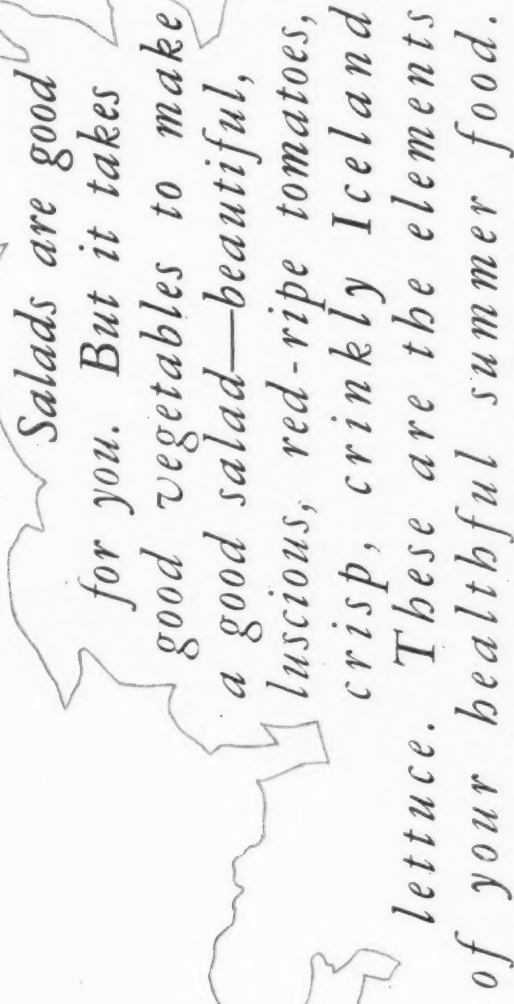 Salads are good
for you. But it takes
good vegetables to make
a good salad—beautiful,
luscious, red-ripe tomatoes,
crisp, crinkly Iceland
lettuce. These are the elements
of your healthful summer food.